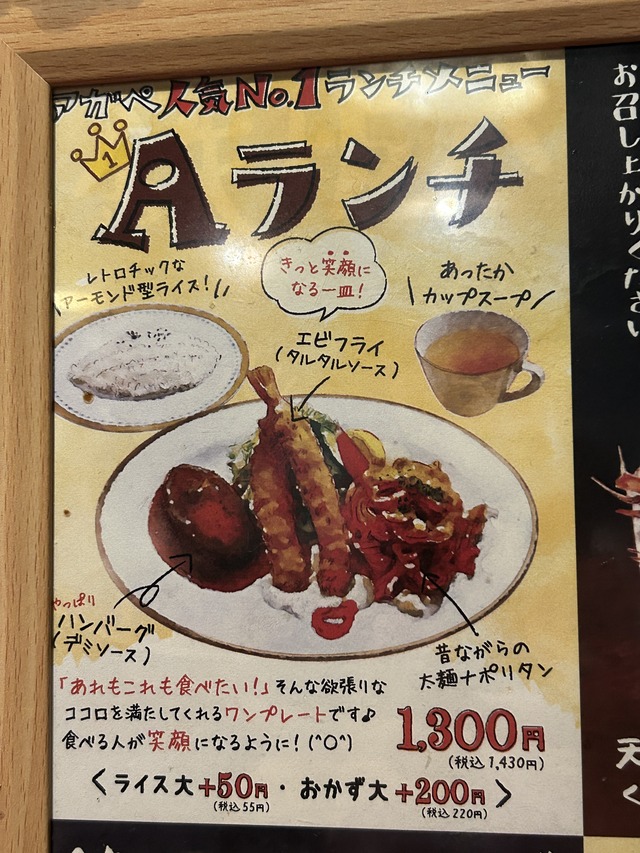 アガペ人気No.1ランチメニュー
1
Aランチ
レトロチックな
アーモンド型ライス!
きっと笑顔に
なる一皿!
あったか
カップスープ
エビフライ
(タルタルソース)
やっぱり
ハンバーグ
(デミソース)
昔ながらの
太麺ナポリタン
「あれもこれも食べたい!」そんな欲張りな
ココロを満たしてくれるワンプレートです♪
食べる人が笑顔になるように!(^O^)
1,300円
(税込1,430円)
<ライス大+50円・おかず大+200円>
(税込55円)
(税込220円)
お召し上がりください
天